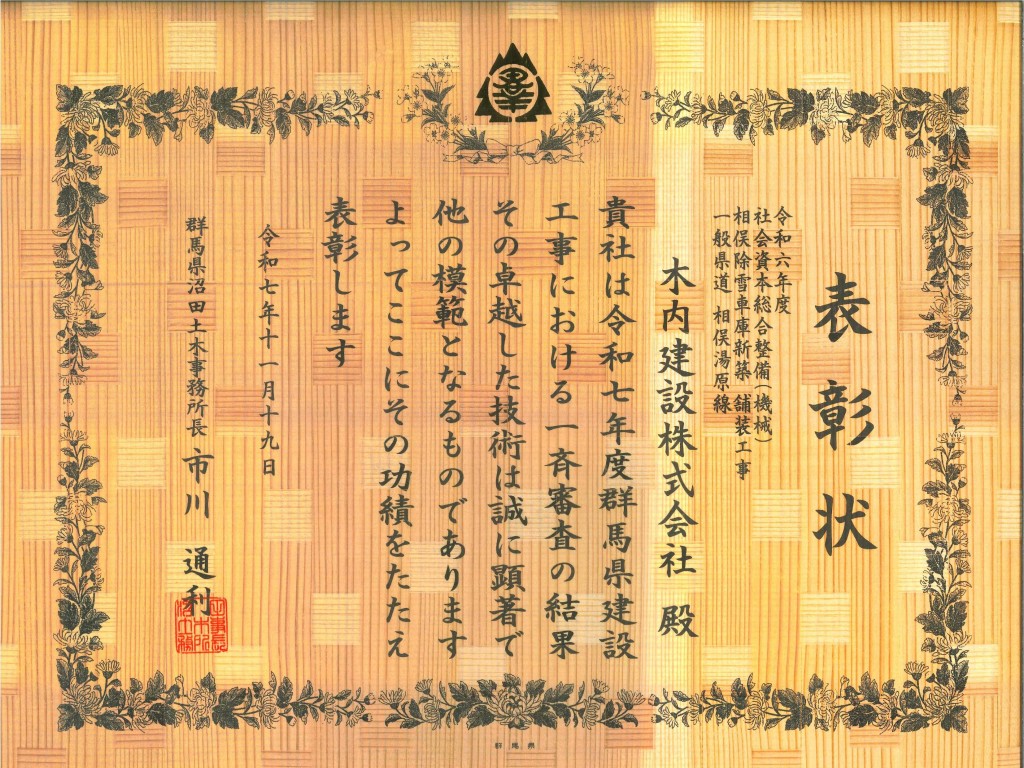 表彰状
令和六年度
社会資本総合整備(機械)
相俣除雪車庫新築 舗装工事
一般県道 相俣湯原線
木内建設株式会社 殿
貴社は令和七年度群馬県建設
工事における一斉審査の結果
その卓越した技術は誠に顕著で
他の模範となるものであります
よってここにその功績をたたえ
表彰します
令和七年十一月十九日
群馬県沼田土木事務所長 市川 通利
群馬県